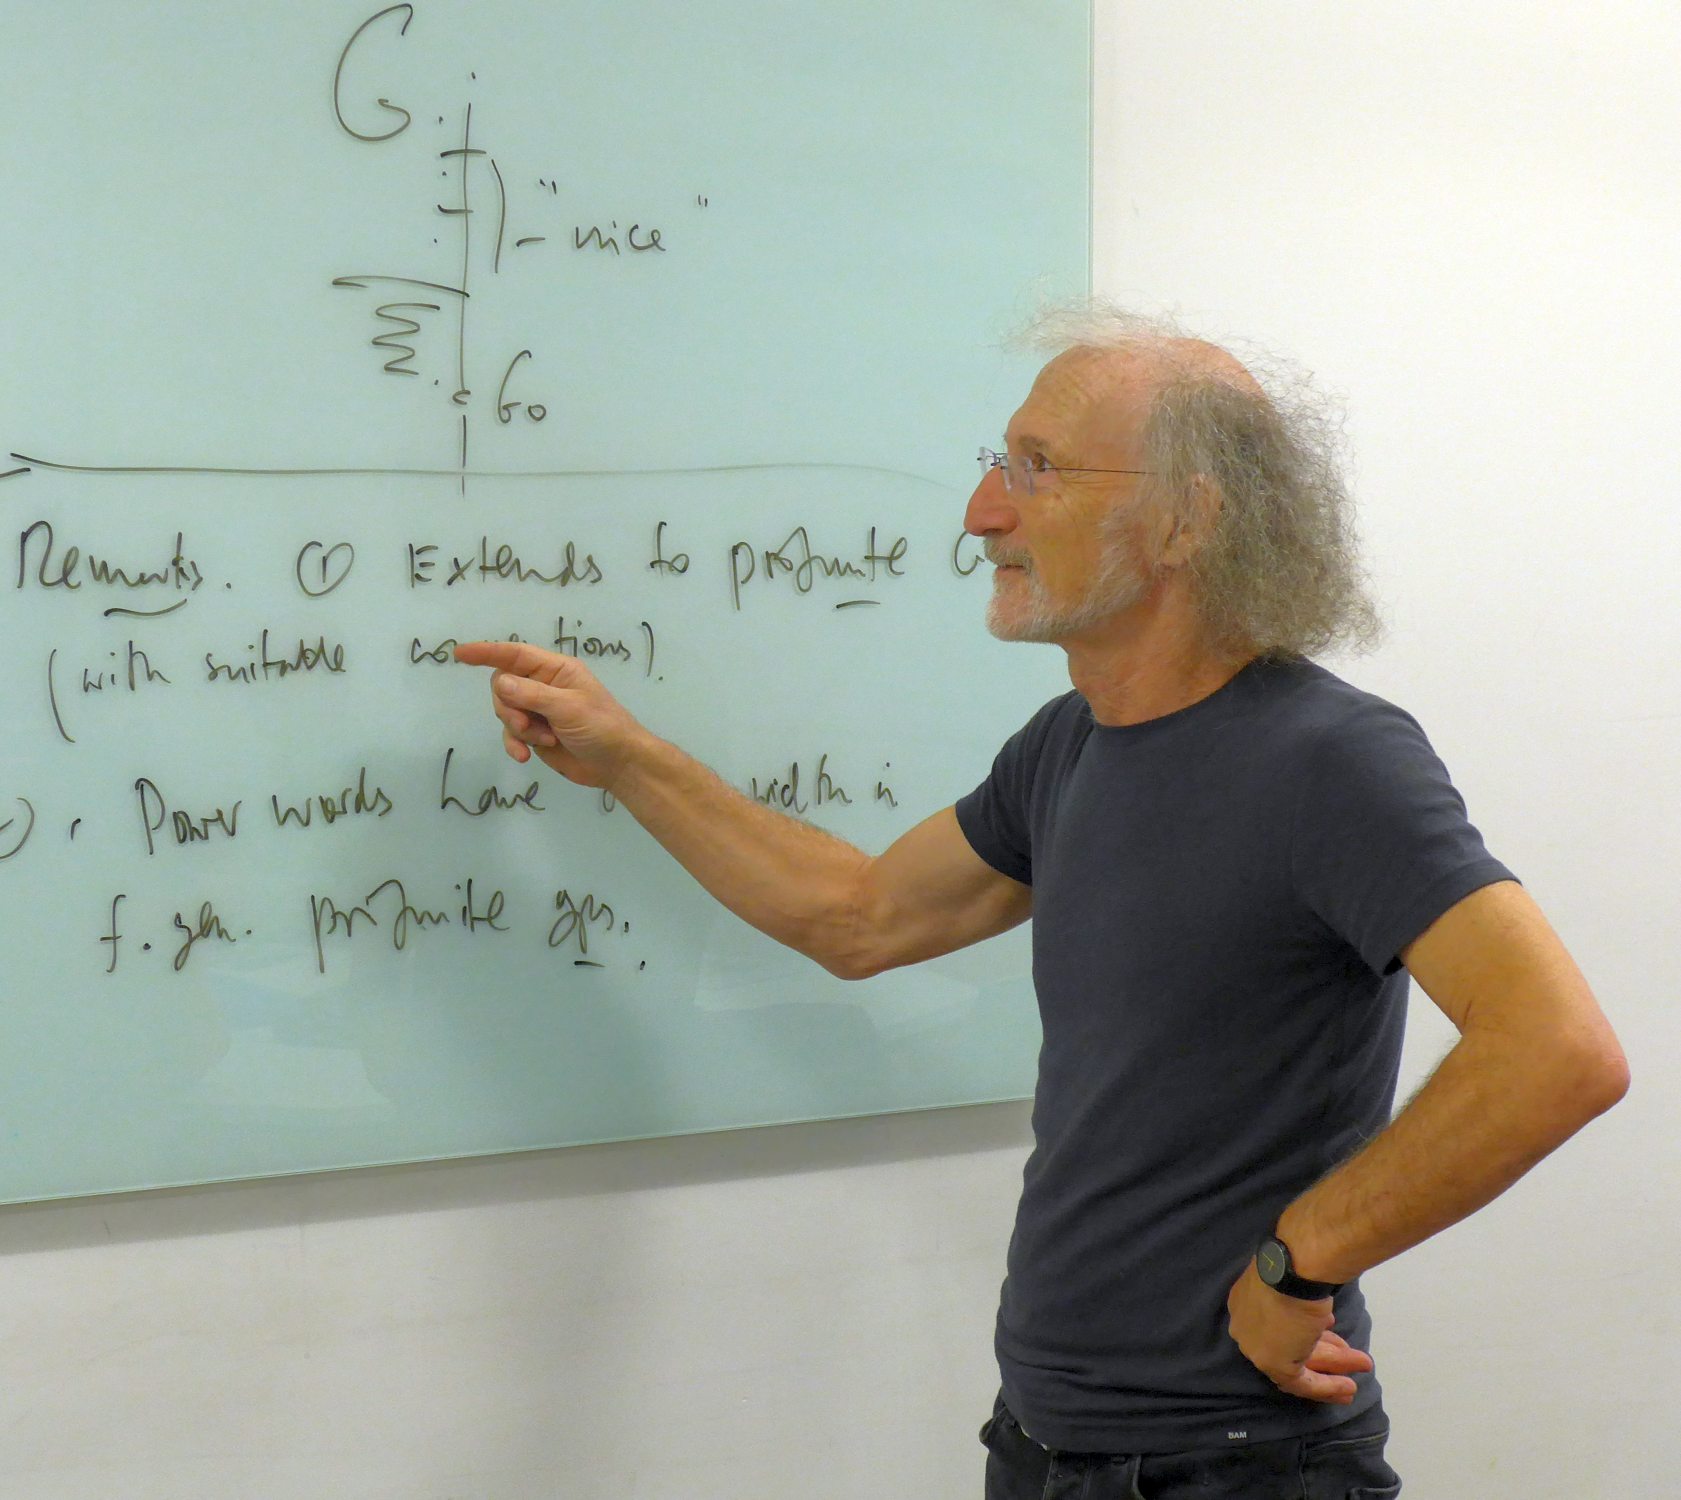 G.
"nice"
G₀
Remarks. ① Extends to profinite G
(with suitable con tions).
Power words have width in
f. gen. profinite gps.
BAM